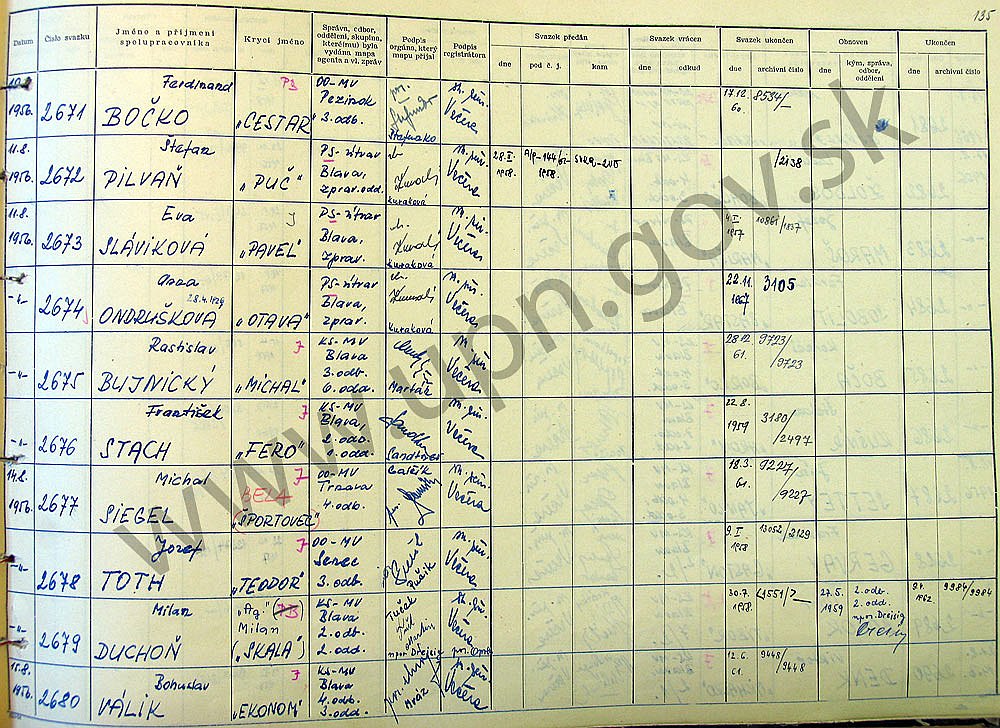 135
Datum
Číslo svazku
Jméno a příjmení
spolupracovníka
Krycí jméno
Správa, odbor,
oddělení, skupina,
kterému(i) byla
vydána mapa
agenta a vl. zpráv
Podpis
orgána, který
mapu přijal
Podpis
registrátora
Svazek předán
dne
pod č. j.
kam
Svazek vrácen
dne
odkud
Svazek ukončen
dne
archivní číslo
Obnoven
dne
kým, správa,
odbor,
oddělení
Ukončen
dne
archivní číslo
1956.
2671
Ferdinand
BOČKO
"CESTAR"
OO-MV
Pezinok
3. odb.
Včera
17.12.
60.
8534/—
11.8.
1956.
2672
Štefan
PILVAŇ
"PUČ"
Blava,
zprav. odd.
Kuraková
Včera
28.II.
1958.
/2138
11.8.
1956.
2673
Eva
SLÁVIKOVÁ
J
"PAVEL"
Blava,
zprav.
Kuraková
Včera
4.II.
1957
10861/1837
-"-
2674
Anna
28.4.1929
ONDRUŠKOVÁ
"OTAVA"
Blava,
zprav.
Kuraková
Včera
22.11.
1957
3105
-"-
2675
Rastislav
BUJNICKÝ
J
"MICHAL"
KS-MV
Blava
3. odb.
6. odd.
Včera
28.12.
61.
9723/
9723
-"-
2676
František
STACH
J
"FERO"
KS-MV
Blava,
2. odb.
1. odd.
Včera
22.8.
1959
3180/
2497
14.8.
1956.
2677
Michal
SIEGEL
J
BELA
"ŠPORTOVEC"
OO-MV
Trnava
4. odd.
Včera
18.3.
61.
9227/
9227
-"-
2678
Jozef
TOTH
J
"TEODOR"
OO-MV
Senec
3. odb.
Včera
9.I.
1958
13052/2129
-"-
2679
Milan
DUCHOŇ
"Ag."
Milan
("SKALA")
KS-MV
Blava
2. odb.
2. odd.
Tučák
npor. Dreisig
Včera
30.7.
1958.
27.5.
1959
2. odb.
2. odd.
npor. Dreisig
1962.
9984/9984
15.8.
1956.
2680
Bohuslav
VÁLIK
J
"EKONOM"
KS-MV
Blava
4. odb.
3. odd.
Mráz
Včera
12.6.
61.
9448/9448
www.upn.gov.sk